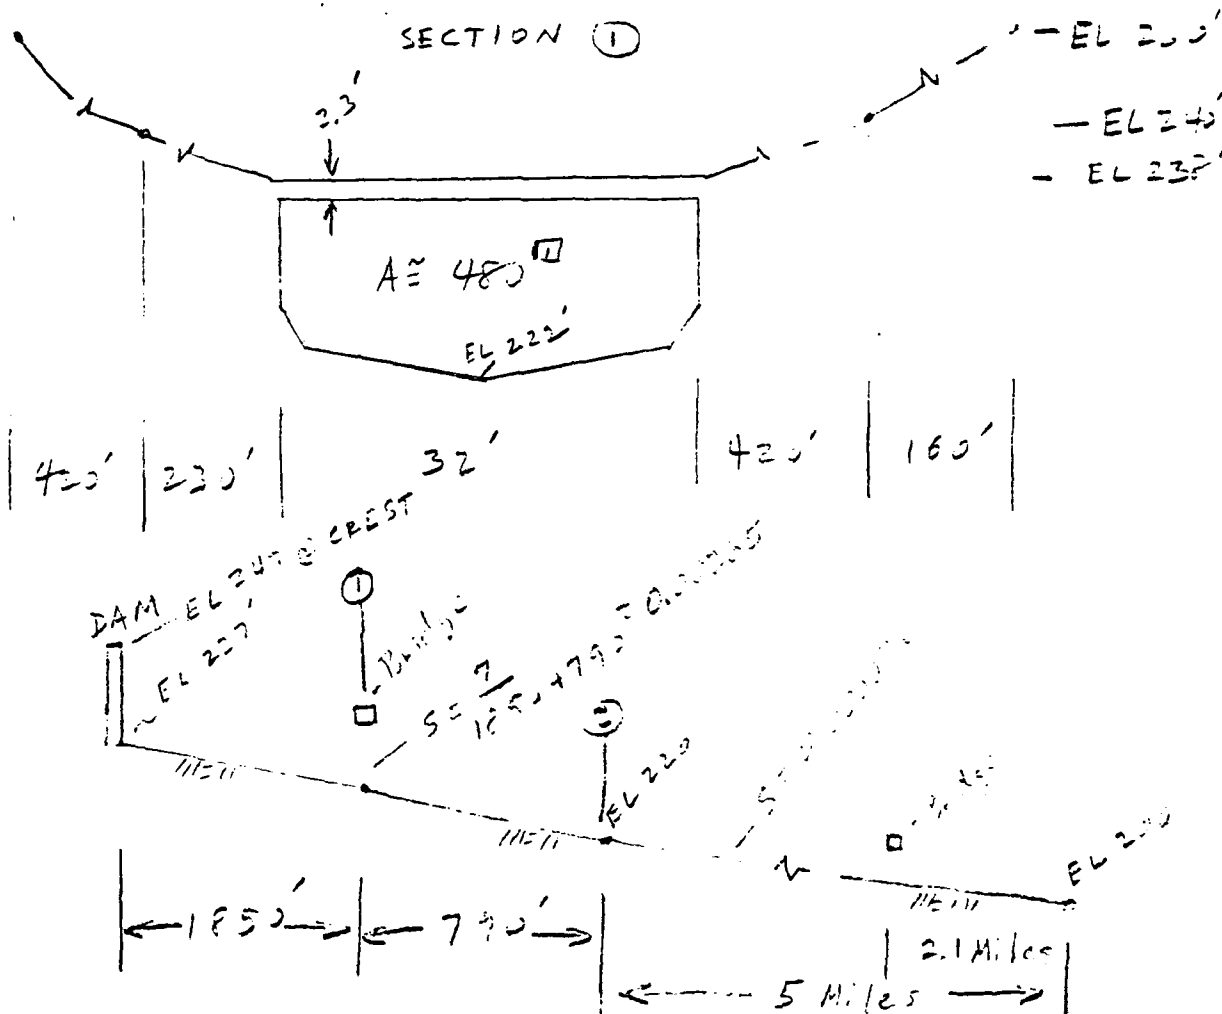 SECTION ①
2.3'
EL 240'
A ≅ 480
EL 222'
420' 230' 32' 420' 160'
DAM
EL 247 @ CREST
EL 227'
①
Bridge
S = 7 / 1850 + 790 =
②
EL 220
EL 200
1850' 790'
2.1 Miles
5 Miles